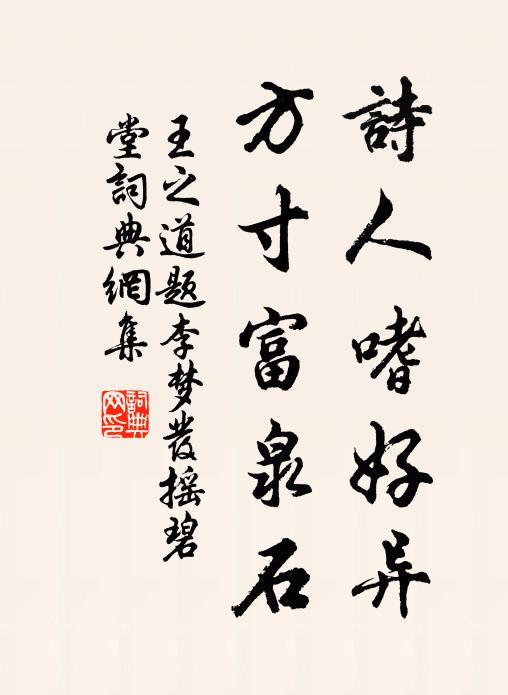 詩人嗜好异
方寸富泉石
王之道題李梦发摇碧
堂詞典網集
詞典网印